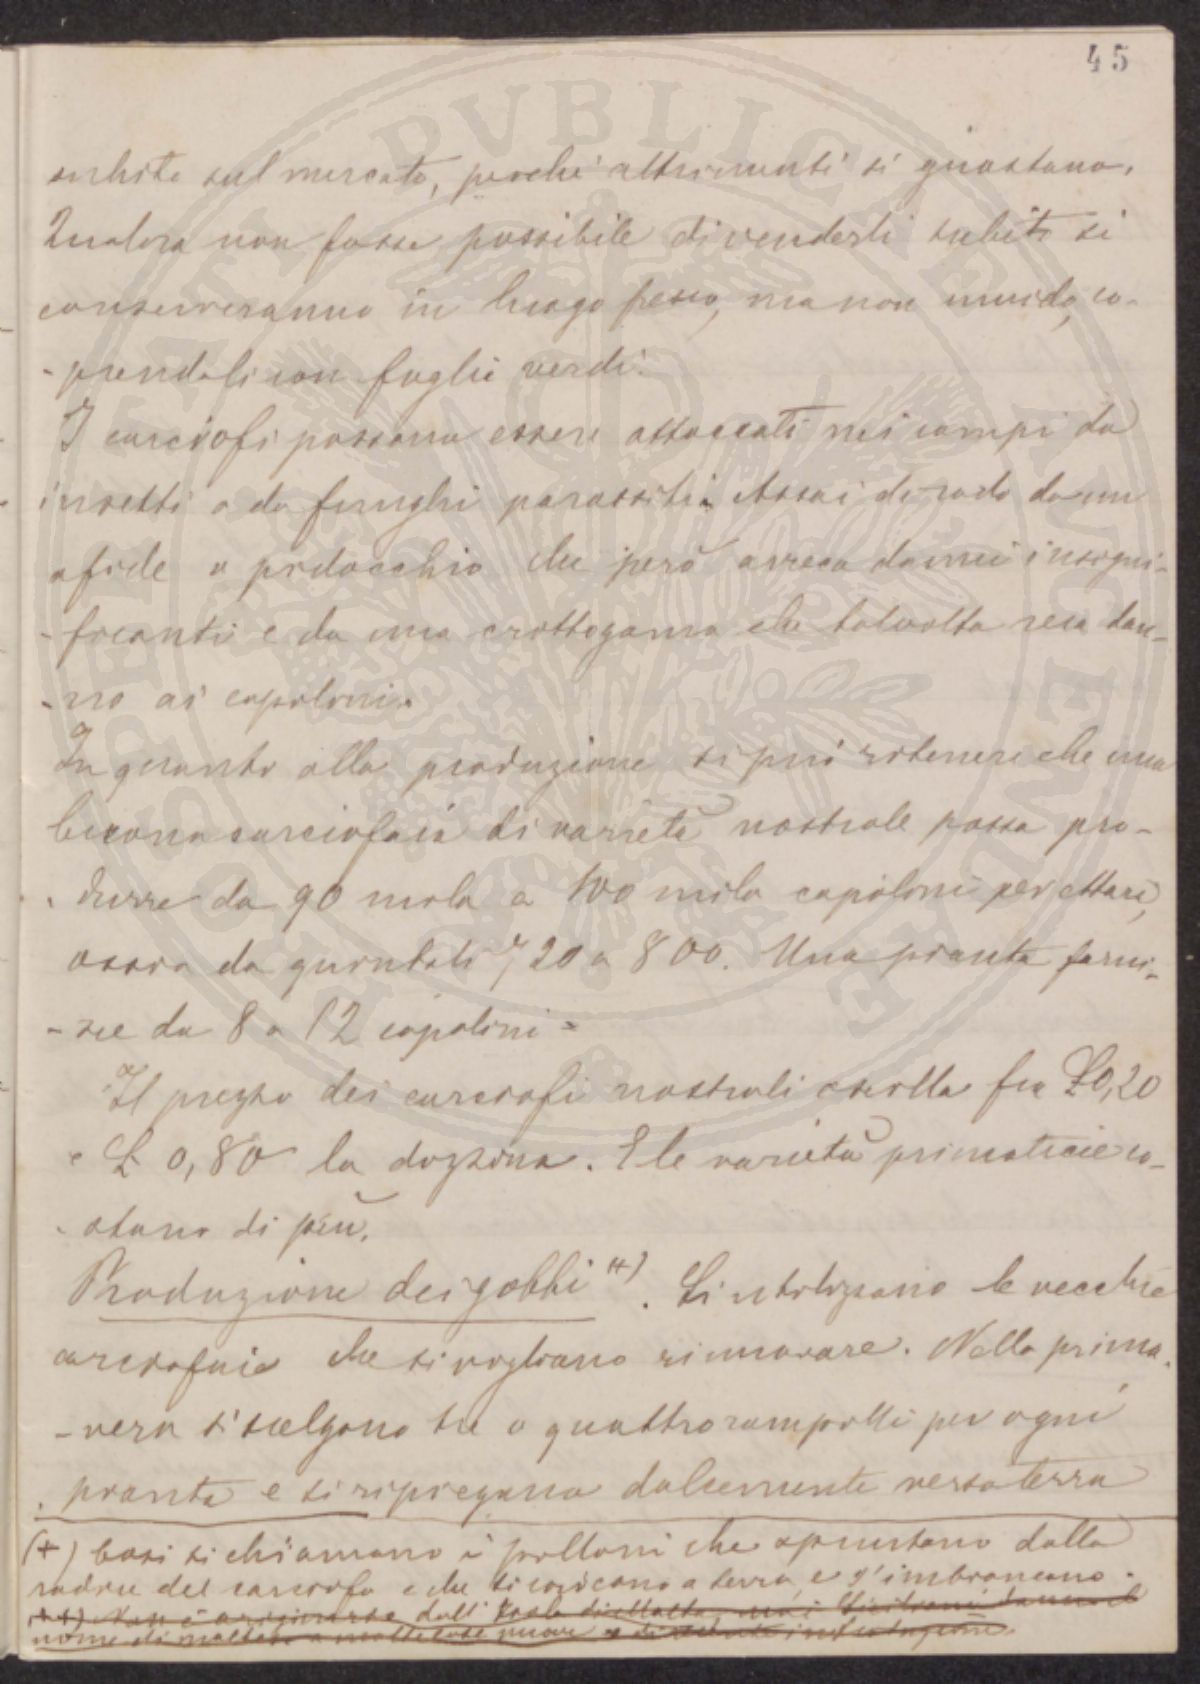 45
subito sul mercato, perchè altrimenti si guastano.
Qualora non fosse possibile di venderli subito si
conserveranno in luogo fresco, ma non umido, co-
-prendoli con foglie verdi.
I carciofi possono essere attaccati nei campi da
insetti o da funghi parassiti. Assai di rado da un
afide o pidocchio che però arreca danni insigni-
-ficanti e da una crittogama che talvolta reca dan-
-no ai capolini.
In quanto alla produzione si può ritenere che una
buona carciofaia di varietà nostrale possa pro-
-durre da 90 mila a 100 mila capolini per ettaro,
ossia da quintali 720 a 800. Una pianta forni-
-sce da 8 a 12 capolini.
Il prezzo dei carciofi nostrali oscilla fra £ 0,20
e £ 0,80 la dozzina. E le varietà primaticcie co-
-stano di più.
Produzione dei gobbi (+). Si utilizzano le vecchie
carciofaie che si vogliono rinnovare. Nella prima-
-vera si scelgono tre o quattro rampolli per ogni
pianta e si ripiegano dolcemente verso terra
(+) Così si chiamano i polloni che spuntano dalla
radice del carciofo e che si coricano a terra e s'imbiancano.
(++) Non è originario dall' Isola di Malta, ma i Siciliani danno il
nome di maltese a